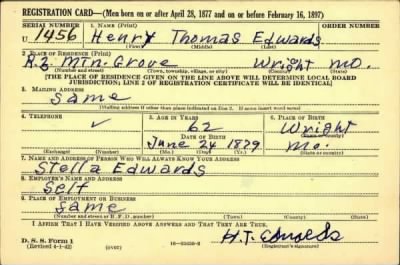 REGISTRATION CARD—(Men born on or after April 28, 1877 and on or before February 16, 1897)
SERIAL NUMBER 1. NAME (Print) ORDER NUMBER
U 1456 Henry Thomas Edwards
(First) (Middle) (Last)
2. PLACE OF RESIDENCE (Print)
R.2 Mtn. Grove Wright Mo.
(Number and street) (Town, township, village, or city) (County) (State)
[THE PLACE OF RESIDENCE GIVEN ON THE LINE ABOVE WILL DETERMINE LOCAL BOARD
JURISDICTION; LINE 2 OF REGISTRATION CERTIFICATE WILL BE IDENTICAL]
3. MAILING ADDRESS
Same
[Mailing address if other than place indicated on line 2. If same insert word same]
4. TELEPHONE 5. AGE IN YEARS 6. PLACE OF BIRTH
62 Wright
DATE OF BIRTH (Town or county)
June 24 1879 Mo.
(Exchange) (Number) (Mo.) (Day) (Yr.) (State or country)
7. NAME AND ADDRESS OF PERSON WHO WILL ALWAYS KNOW YOUR ADDRESS
Stella Edwards
8. EMPLOYER'S NAME AND ADDRESS
Self
9. PLACE OF EMPLOYMENT OR BUSINESS
Same
(Number and street or R. F. D. number) (Town) (County) (State)
I AFFIRM THAT I HAVE VERIFIED ABOVE ANSWERS AND THAT THEY ARE TRUE.
D. S. S. Form 1 H.T. Edwards
(Revised 4-1-42) (over) (Registrant's signature)